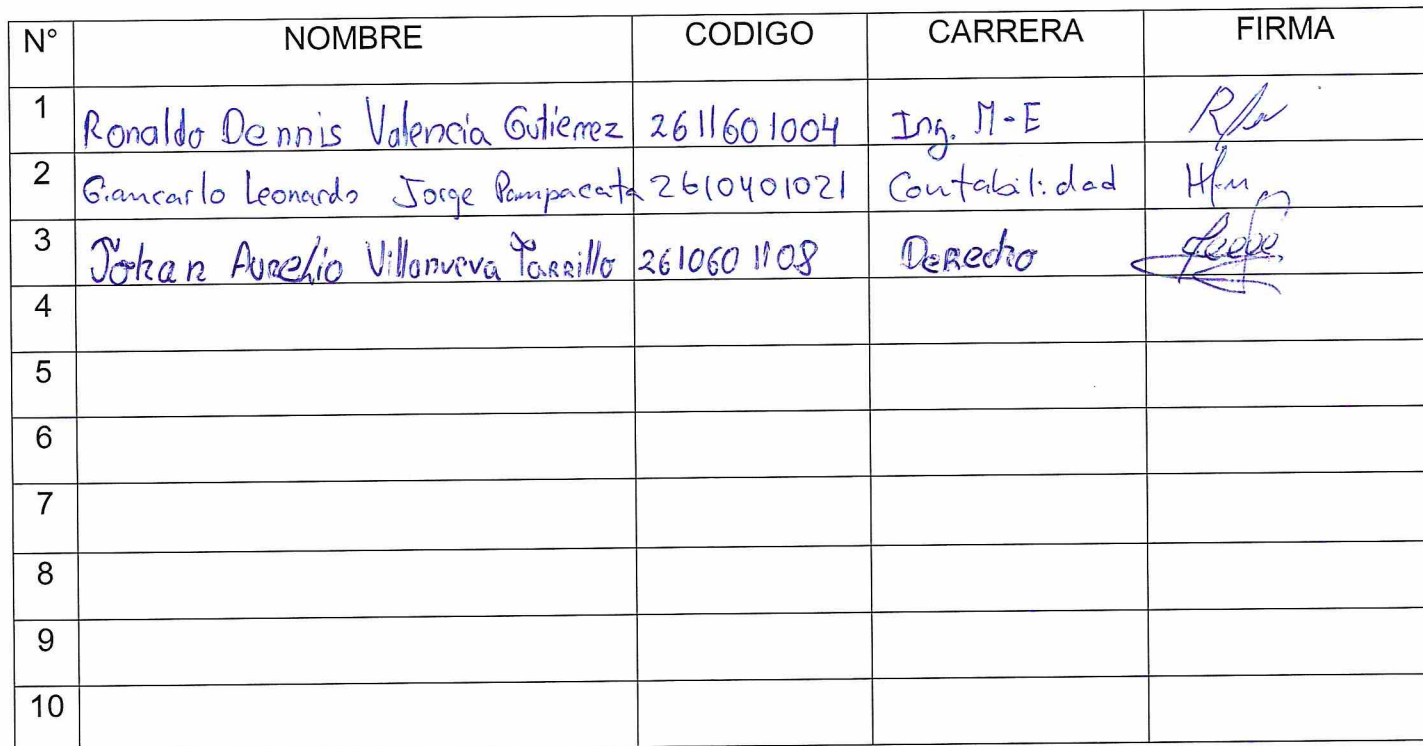 N° NOMBRE CODIGO CARRERA FIRMA
1 Ronaldo Dennis Valencia Gutierrez 2611601004 Ing. M-E
2 Giancarlo Leonardo Jorge Pampacata 2610401021 Contabilidad
3 Johan Aurelio Villanueva Tarrillo 2610601108 Derecho
4
5
6
7
8
9
10